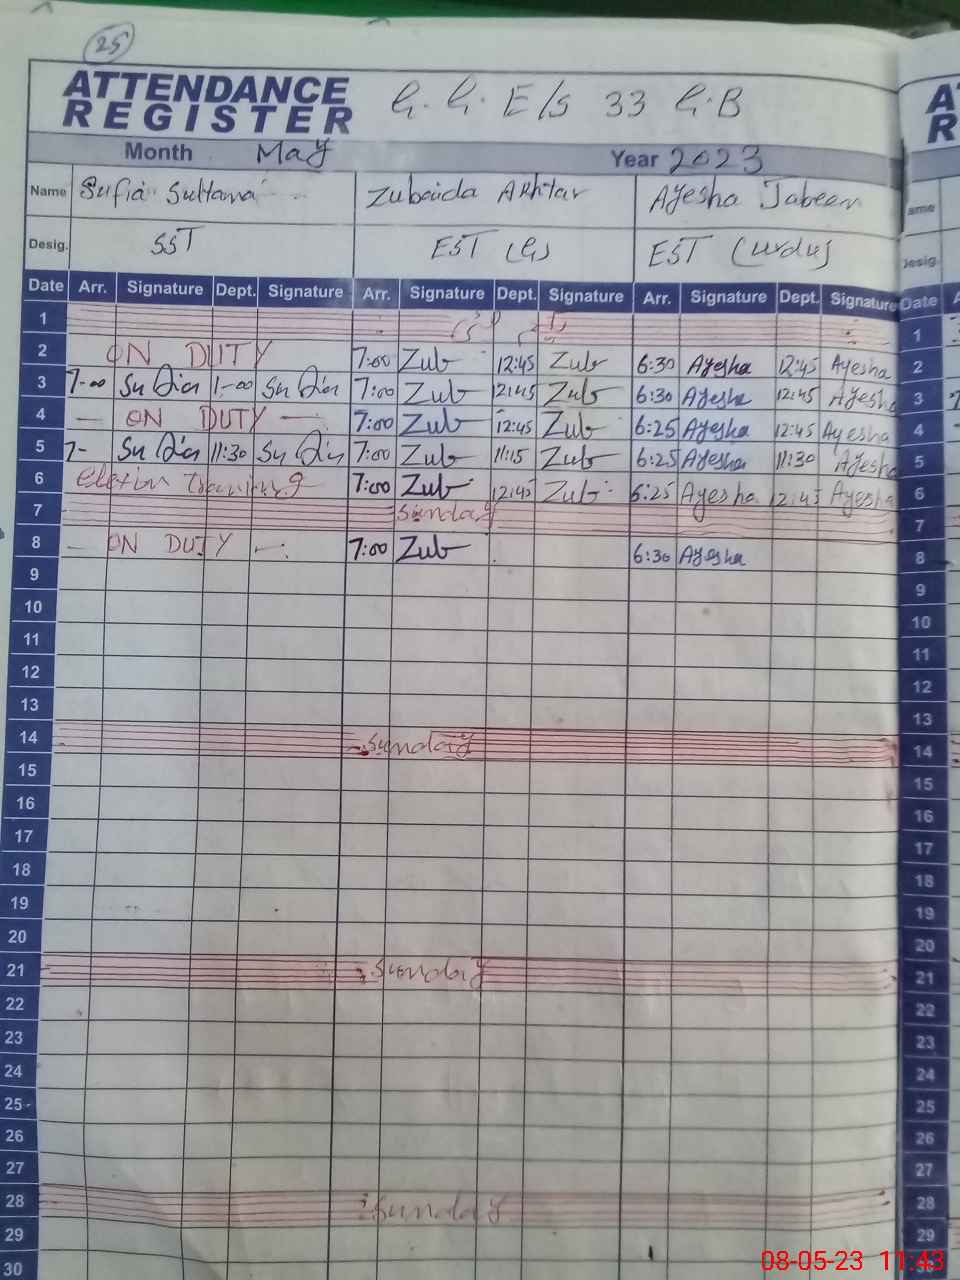 25
ATTENDANCE
REGISTER
G.G.E/S 33 G.B
Month May Year 2023
Name Sufia Sultana Zubaida Akhtar Ayesha Jabeen
Desig. SST EST (G) EST (urdu)
Date Arr. Signature Dept. Signature Arr. Signature Dept. Signature Arr. Signature Dept. Signature Date
1 1
2 ON DUTY 7:00 Zub 12:45 Zub 6:30 Ayesha 12:45 Ayesha 2
3 7-00 1-00 7:00 Zub 12:45 Zub 6:30 Ayesha 12:45 Ayesha 3
4 — ON DUTY — 7:00 Zub 12:45 Zub 6:25 Ayesha 12:45 Ayesha 4
5 7- 11:30 7:00 Zub 11:15 Zub 6:25 Ayesha 11:30 Ayesha 5
6 Election 7:00 Zub 12:45 Zub 6:25 Ayesha 12:45 Ayesha 6
7 Sunday 7
8 — ON DUTY — 7:00 Zub 6:30 Ayesha 8
9 9
10 10
11 11
12 12
13 13
14 Sunday 14
15 15
16 16
17 17
18 18
19 19
20 20
21 Sunday 21
22 22
23 23
24 24
25 25
26 26
27 27
28 Sunday 28
29 29
30
08-05-23 11:43